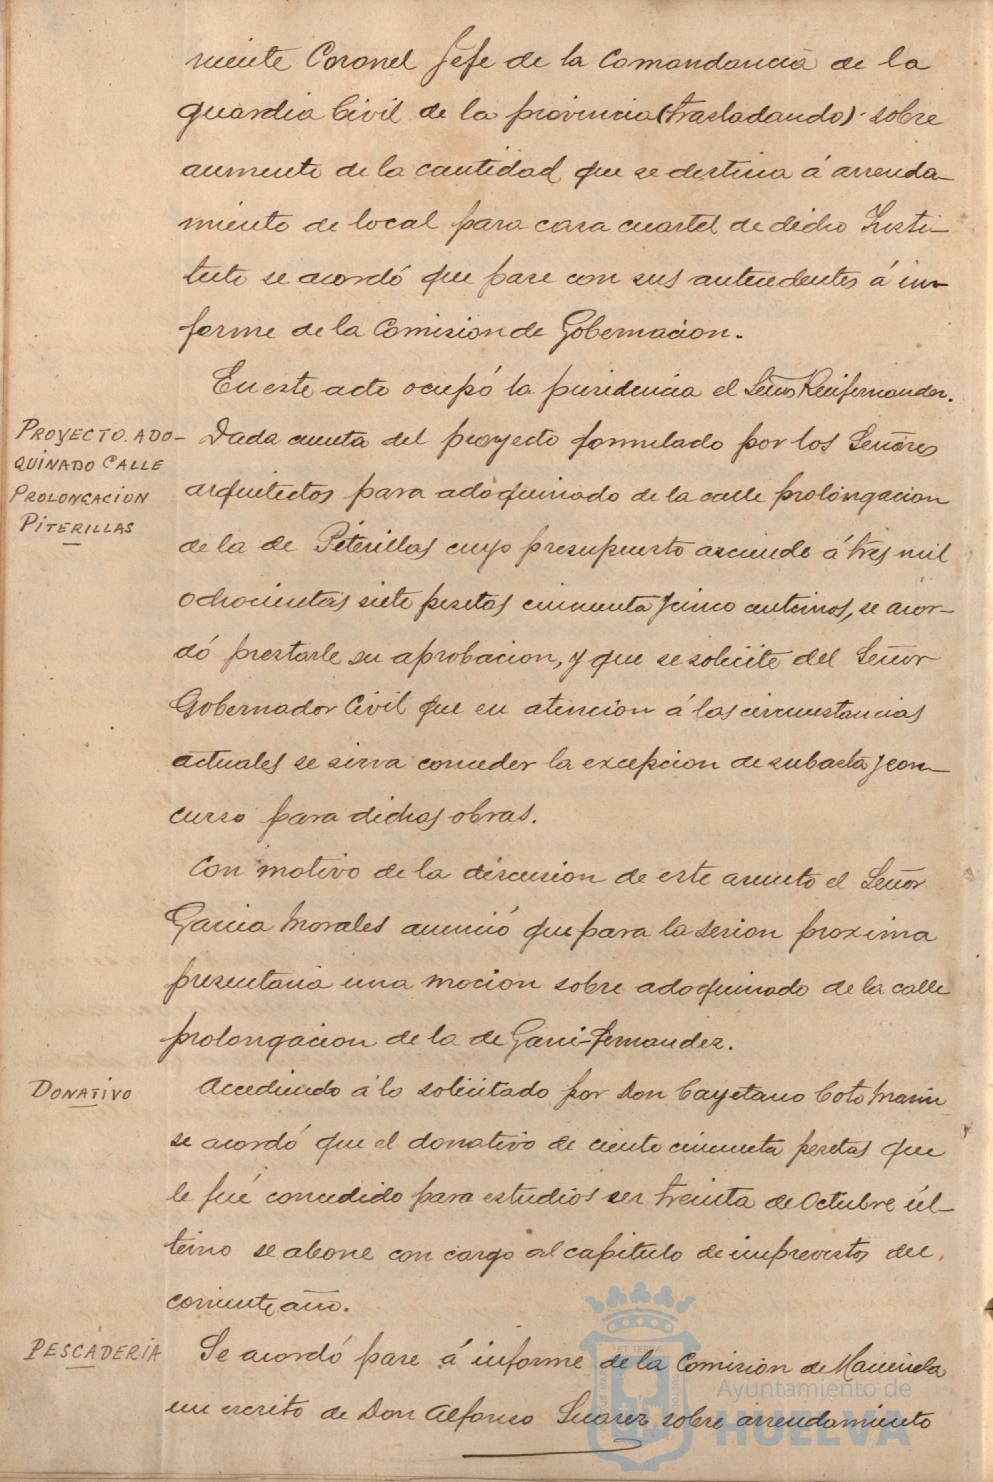 niente Coronel Jefe de la Comandancia de la
guardia Civil de la provincia (trasladando) sobre
aumento de la cantidad que se destina á arrenda-
miento de local para casa cuartel de dicho Insti-
tuto se acordó que pase con sus antecedentes á in-
forme de la Comision de Gobernacion.
En este acto ocupó la presidencia el Señor Recifernandez.
PROYECTO ADO-
QUINADO CALLE
PROLONGACION
PITERILLAS
Dada cuenta del proyecto formulado por los Señores
arquitectos para adoquinado de la calle prolongacion
de la de Piterillas cuyo presupuesto asciende á tres mil
ochocientas siete pesetas cincuenta y cinco centimos, se acor-
dó prestarle su aprobacion, y que se solicite del Señor
Gobernador Civil que en atencion á las circunstancias
actuales se sirva conceder la excepcion de subasta y con-
curso para dichas obras.
Con motivo de la discusion de este asunto el Señor
Garcia Morales anunció que para la sesion proxima
presentaria una mocion sobre adoquinado de la calle
prolongacion de la de Garci-Fernandez.
DONATIVO
Accediendo á lo solicitado por Don Cayetano Coto Marin
se acordó que el donativo de ciento cincuenta pesetas que
le fué concedido para estudios en treinta de Octubre úl-
timo se abone con cargo al capitulo de imprevistos del
corriente año.
PESCADERIA
Se acordó pase á informe de la Comision de Hacienda
un escrito de Don Alfonso Suarez sobre arrendamiento
Ayuntamiento de
HUELVA